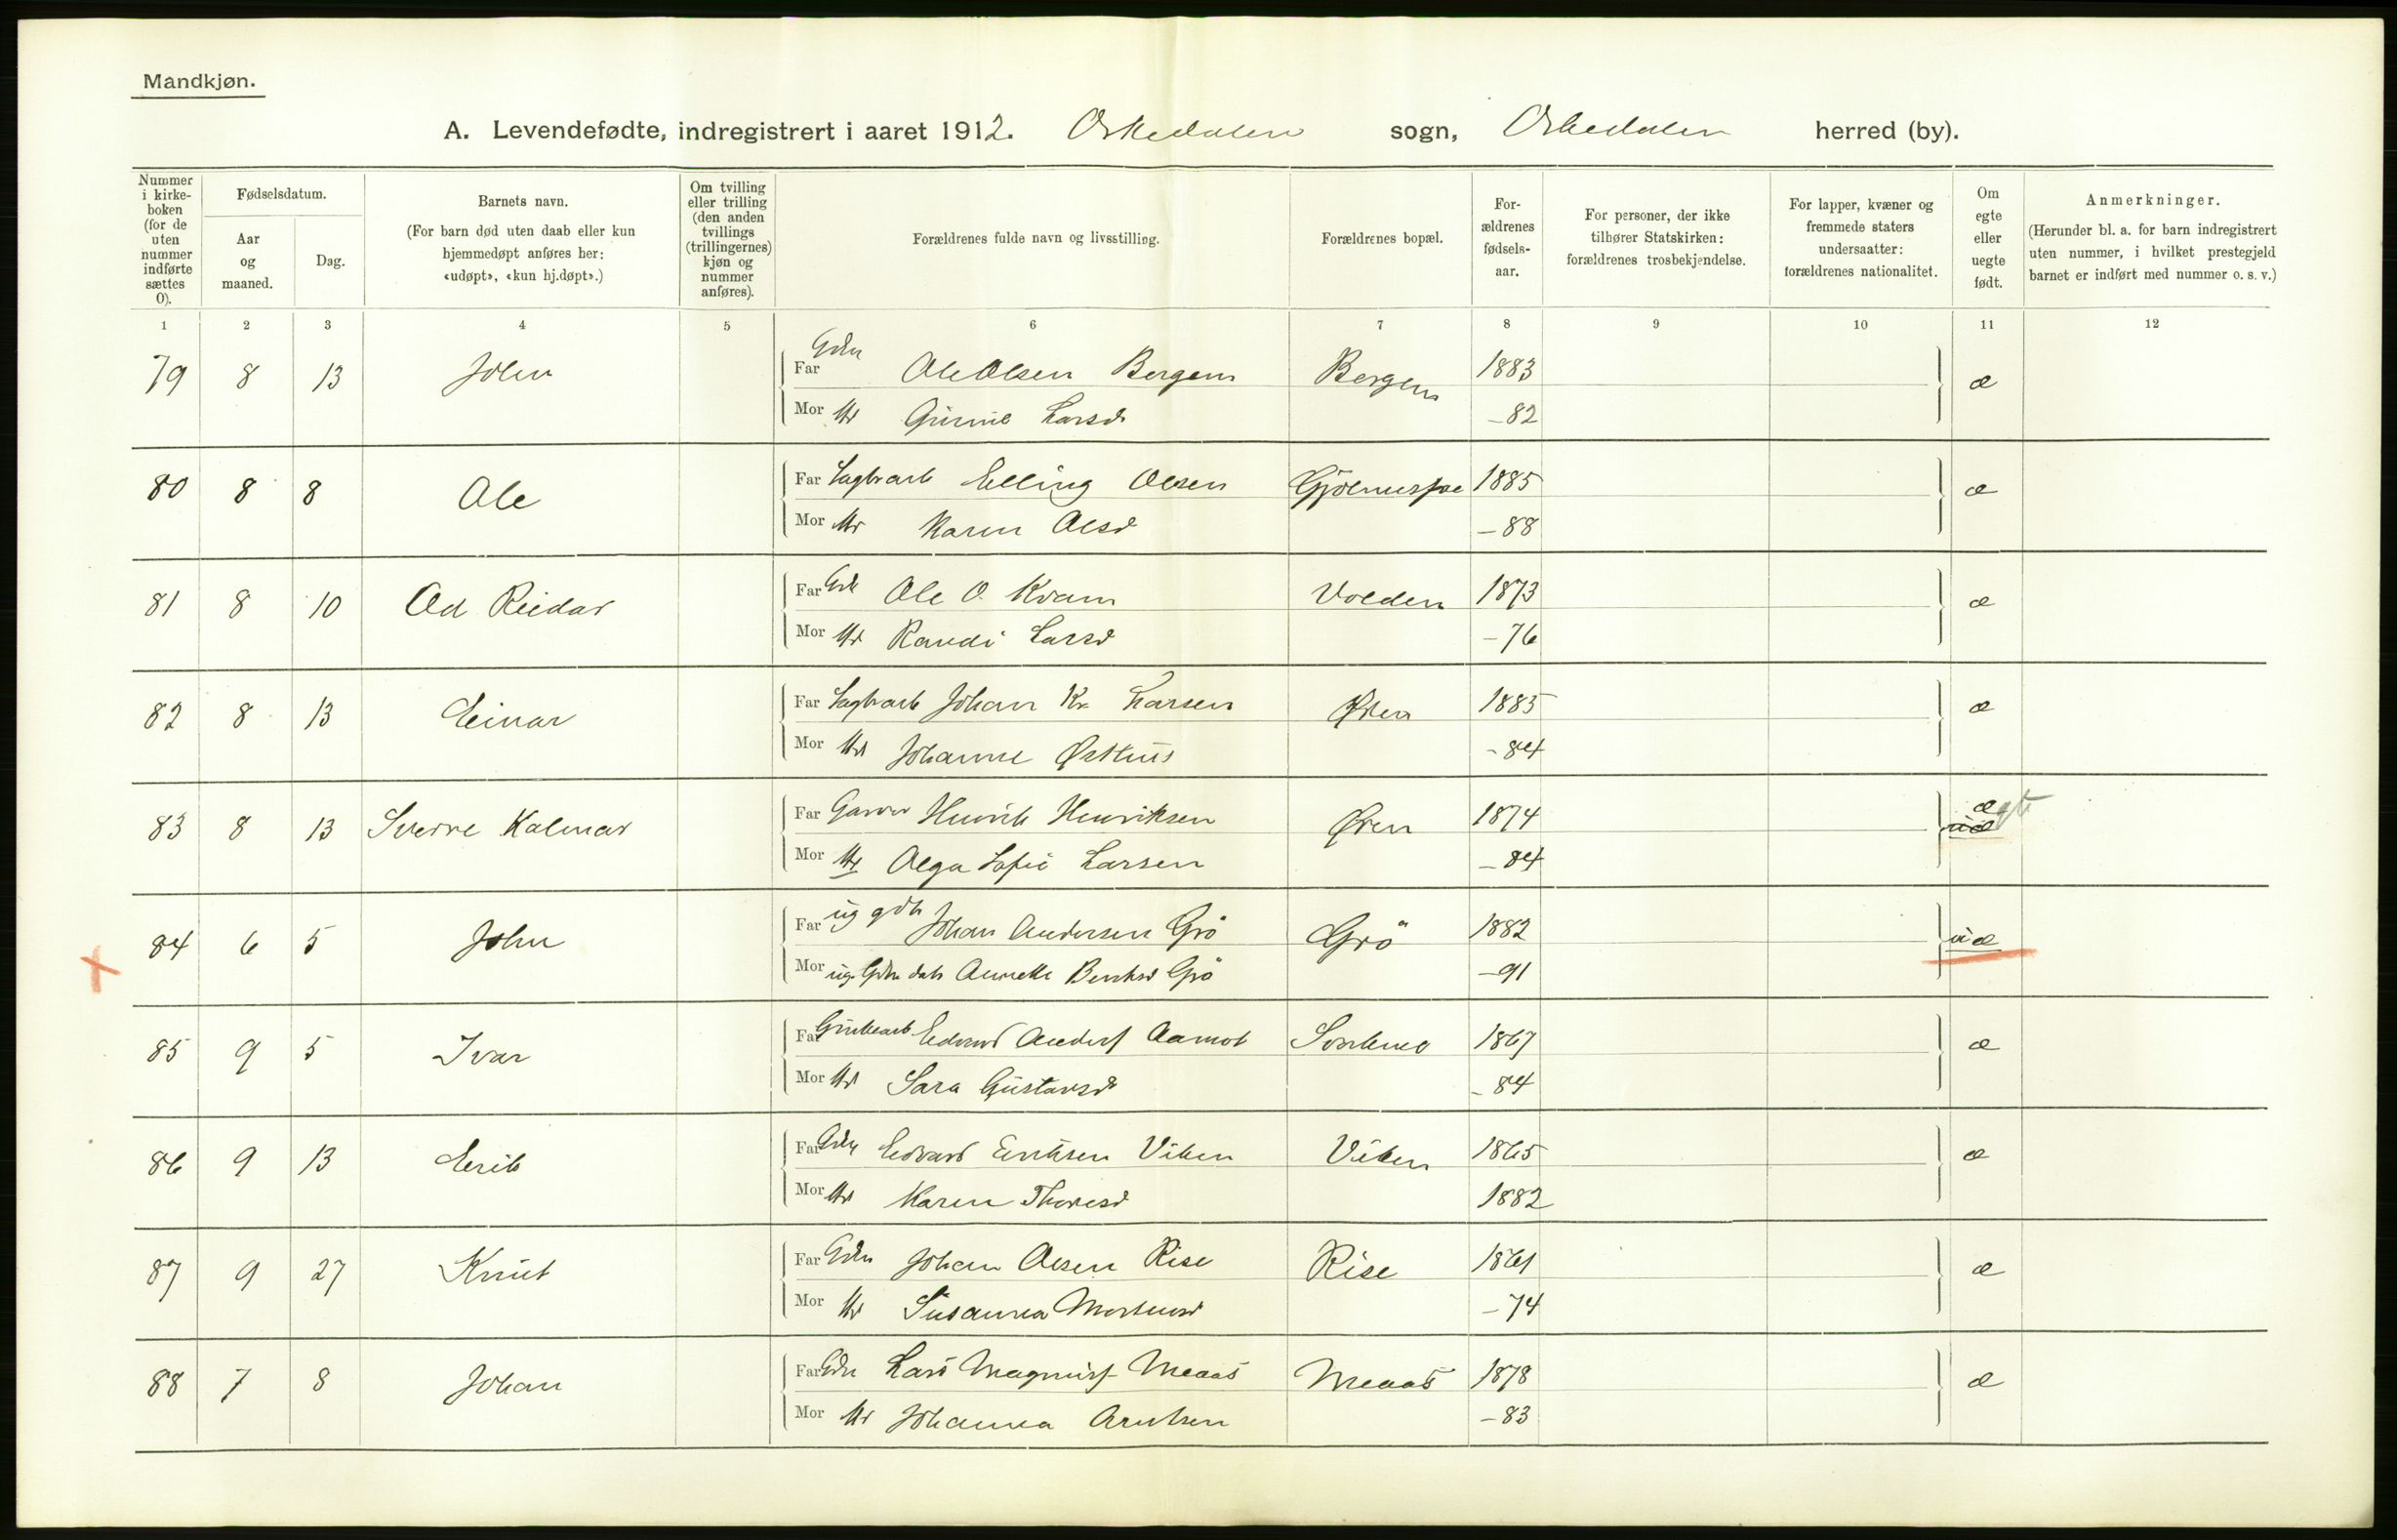 Mandkjøn.
A. Levendefødte, indregistrert i aaret 1912. Orkedalen sogn, Orkedalen herred (by).
Nummer i kirke-boken (for de uten nummer indførte sættes 0).
Fødselsdatum.
Aar og maaned.
Dag.
Barnets navn.
(For barn død uten daab eller kun hjemmedøpt anføres her: «udøpt», «kun hj.døpt».)
Om tvilling eller trilling (den anden tvillings (trillingernes) kjøn og nummer anføres).
Forældrenes fulde navn og livsstilling.
Forældrenes bopæl.
For-ældrenes fødsels-aar.
For personer, der ikke tilhører Statskirken: forældrenes trosbekjendelse.
For lapper, kvæner og fremmede staters undersaatter: forældrenes nationalitet.
Om egte eller uegte født.
Anmerkninger.
(Herunder bl. a. for barn indregistrert uten nummer, i hvilket prestegjeld barnet er indført med nummer o. s. v.)
1 2 3 4 5 6 7 8 9 10 11 12
79 8 13 John Far Gdr Ole Olsen Bergem Bergem 1883 æ
Mor Hr Larsd -82
80 8 8 Ole Far Elling Olsen 1885 æ
Mor Hr Karen Olsd -88
81 8 10 Od Reidar Far Gdr Ole O. Kvam Volden 1873 æ
Mor Hr Randi Larsd -76
82 8 13 Einar Far Johan Kr. Larsen Øren 1885 æ
Mor Hr Johanne Østhus -84
83 8 13 Sverre Kalmar Far Garver Henrik Henriksen Øren 1874 æ
Mor Hr Olga Sofie Larsen -84 uæ
84 6 5 John Far ug Johan Andersen Grö Grö 1882 uæ
Mor ug Gdr datr Bentsd Grö -91
85 9 5 Ivar Far Grubearb Edvard Andersf Aamot 1867 æ
Mor Hr Sara Gustavsd -84
86 9 13 Erik Far Gdr Edvard Eriksen Viken Viken 1865 æ
Mor Hr Karen Thoresd 1882
87 9 27 Knut Far Gdr Johan Olsen Rise Rise 1861 æ
Mor Hr Susanna Mortensd -74
88 7 8 Johan Far Gdr Lars Magnusf Meaas Meaas 1878 æ
Mor Hr Johanna Arntsen -83